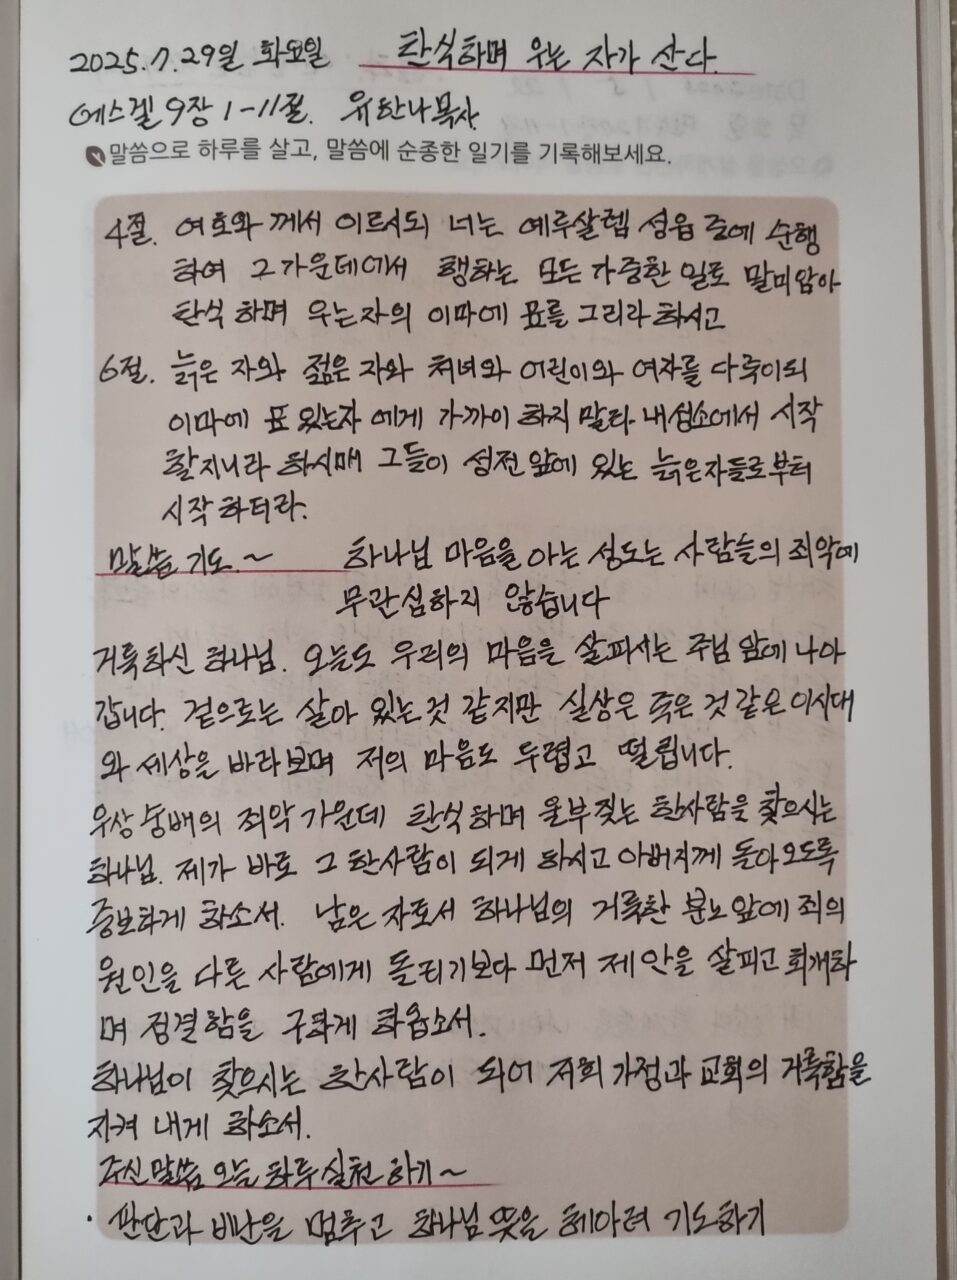 2025.7.29일 화요일 탄식하며 우는 자가 산다.
에스겔 9장 1-11절. 유한나목사
말씀으로 하루를 살고, 말씀에 순종한 일기를 기록해보세요.
4절. 여호와 께서 이르시되 너는 예루살렘 성읍 중에 순행
하여 그가운데에서 행하는 모든 가증한 일로 말미암아
탄식 하며 우는자의 이마에 표를 그리라 하시고
6절. 늙은 자와 젊은 자와 처녀와 어린이와 여자를 다 죽이되
이마에 표 있는자 에게 가까이 하지 말라 내성소에서 시작
할지니라 하시매 그들이 성전 앞에 있는 늙은자들로부터
시작 하더라.
말씀 기도.~ 하나님 마음을 아는 성도는 사람들의 죄악에
무관심하지 않습니다
거룩하신 하나님. 오늘도 우리의 마음을 살피시는 주님 앞에 나아
갑니다. 겉으로는 살아 있는것 같지만 실상은 죽은 것 같은 이시대
와 세상을 바라보며 저의 마음도 두렵고 떨립니다.
우상 숭배의 죄악 가운데 탄식하며 울부짖는 한사람을 찾으시는
하나님. 제가 바로 그 한사람이 되게 하시고 아버지께 돌아오도록
중보하게 하소서. 남은 자로서 하나님의 거룩한 분노앞에 죄의
원인을 다른 사람에게 돌리기보다 먼저 제 안을 살피고 회개하
며 정결함을 구하게 하옵소서.
하나님이 찾으시는 한사람이 되어 저희 가정과 교회의 거룩함을
지켜 내게 하소서.
주신 말씀 오늘 하루 실천 하기~
· 판단과 비난을 멈추고 하나님 뜻을 헤아려 기도하기